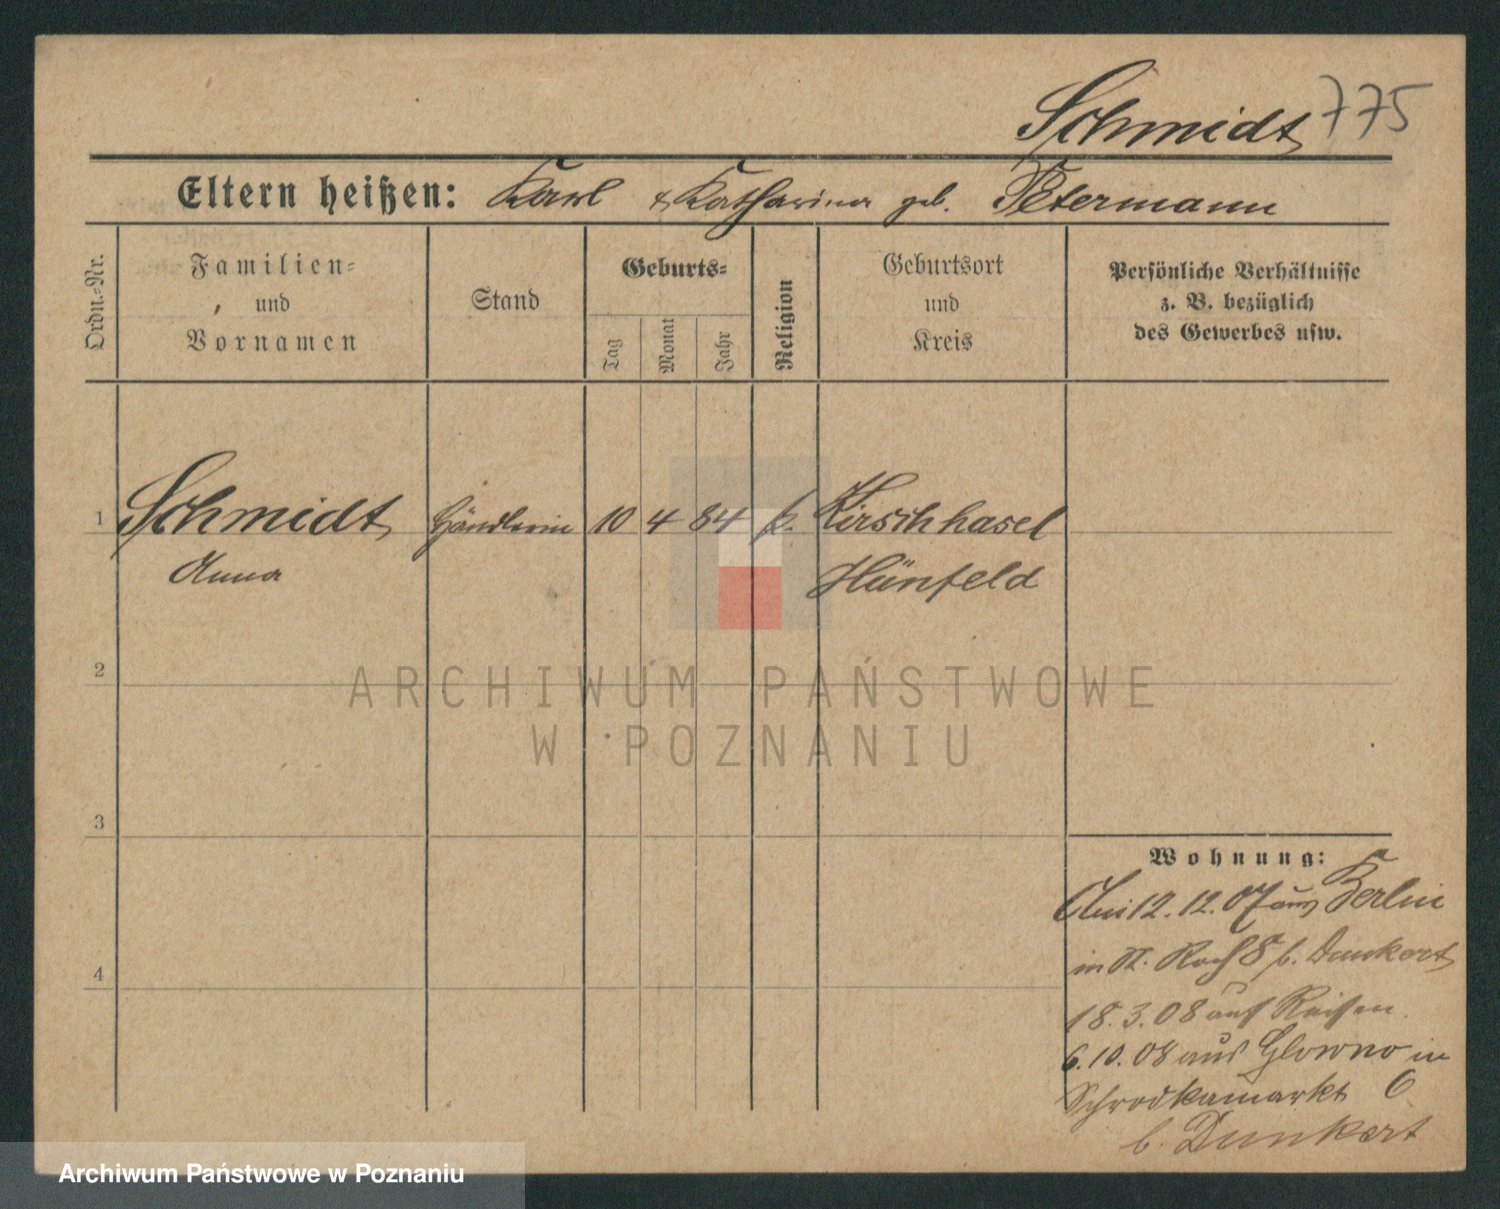 Schmidt 775
Eltern heißen: Karl & Katharina geb. Petermann
Ordn.-Nr.
Familien-
und
Vornamen
Stand
Geburts-
Tag
Monat
Jahr
Religion
Geburtsort
und
Kreis
Persönliche Verhältnisse
z. B. bezüglich
des Gewerbes usw.
1 Schmidt Händlerin 10 4 84 k. Kirschhasel
Anna Hünfeld
2
ARCHIWUM PAŃSTWOWE
W POZNANIU
3
Wohnung:
Am 12.12.07 aus Berlin
in St. Roch 8 b. Dunkert
4
18.3.08 auf Reisen.
6.10.08 aus Glowno in
Schrodkamarkt 6
b. Dunkert
Archiwum Państwowe w Poznaniu